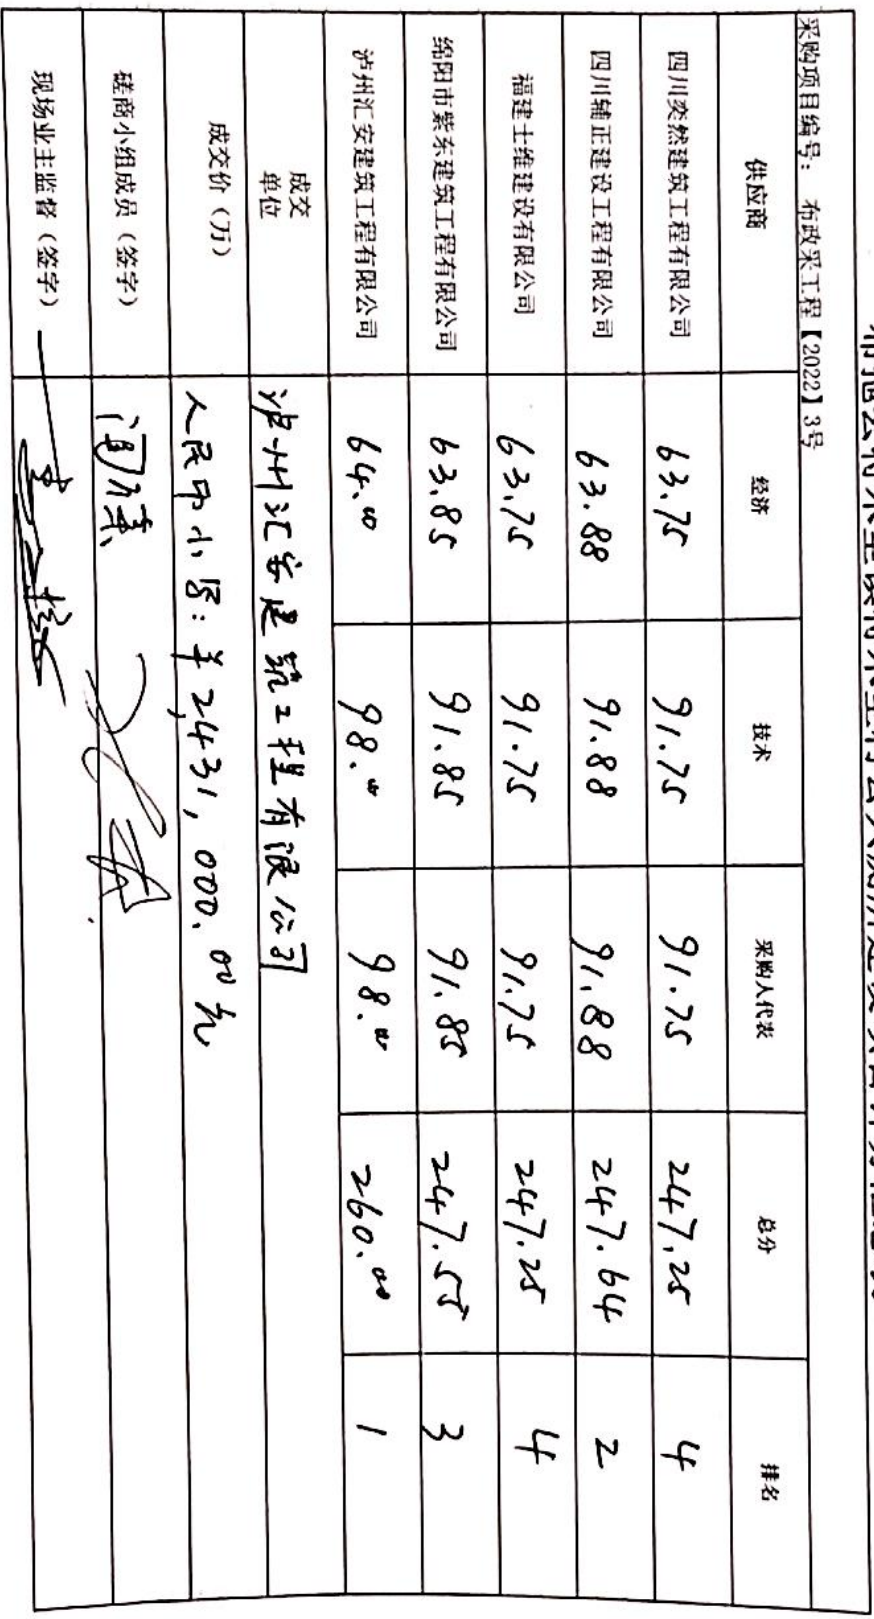 采购项目编号： 布政采工程【2022】3号
供应商 经济 技术 采购人代表 总分 排名
四川奕然建筑工程有限公司 63.75 91.75 91.75 247.25 4
四川辅正建设工程有限公司 63.88 91.88 91.88 247.64 2
福建士维建设有限公司 63.75 91.75 91.75 247.25 4
绵阳市紫东建筑工程有限公司 63.85 91.85 91.85 247.55 3
泸州汇安建筑工程有限公司 64.00 98.00 98.00 260.00 1
成交
单位 泸州汇安建筑工程有限公司
成交价（万） 人民币小写：¥2,431,000.00元
磋商小组成员（签字）
现场业主监督（签字）